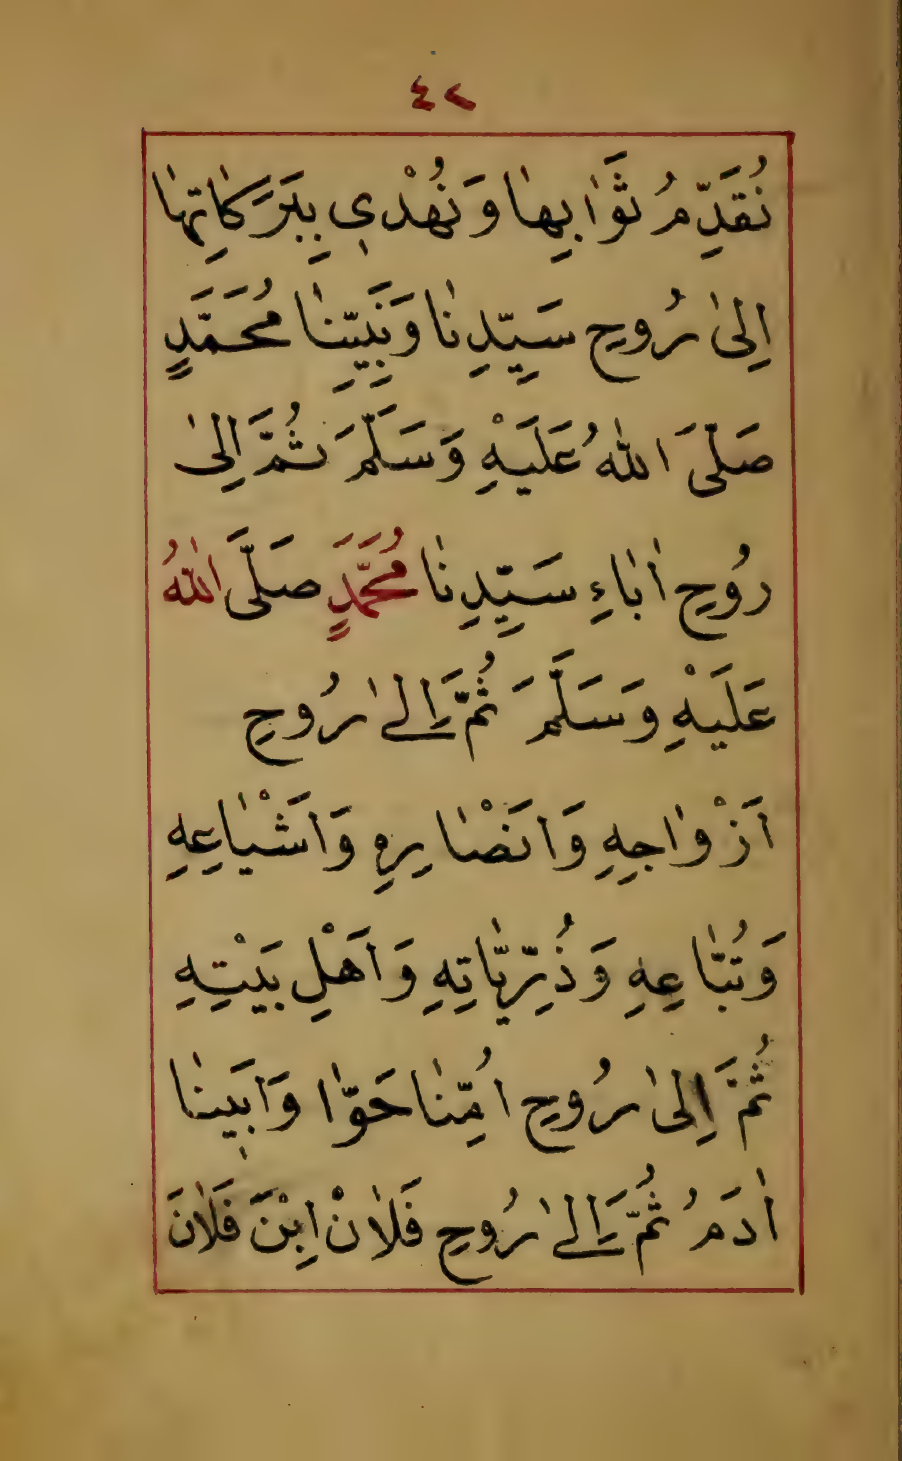 ٤٢
نُقَدِّمُ ثَوٰابِهٰا وَنُهْدٖي بِبَرَكٰاتِهٰا
اِلىٰ رُوحِ سَيِّدِنٰا وَنَبِيِّنٰا مُحَمَّدٍ
صَلَّىَ اللهُ عَلَيْهِ وَسَلَّمَ ثُمَّ اِلىٰ
رُوُحِ اٰبٰاءِ سَيِّدِنٰا مُحَمَّدٍ صَلَّى اللهُ
عَلَيْهِ وَسَلَّمَ ثُمَّ اِلےٰ رُوحِ
اَزْوٰاجِهِ وَاَنْضٰارِهِ وَاَشْيٰاعِهِ
وَتُبّٰاعِهِ وَذُرِّيّٰاتِهِ وَاَهْلِ بَيْتِهِ
ثُمَّ اِلىٰ رُوُحِ اُمِّنٰا حَوّٰا وَاَبٖينٰا
اٰدَمُ ثُمَّ اِلےٰ رُوُحِ فَلٰانْ اِبْنَ فَلٰانَ